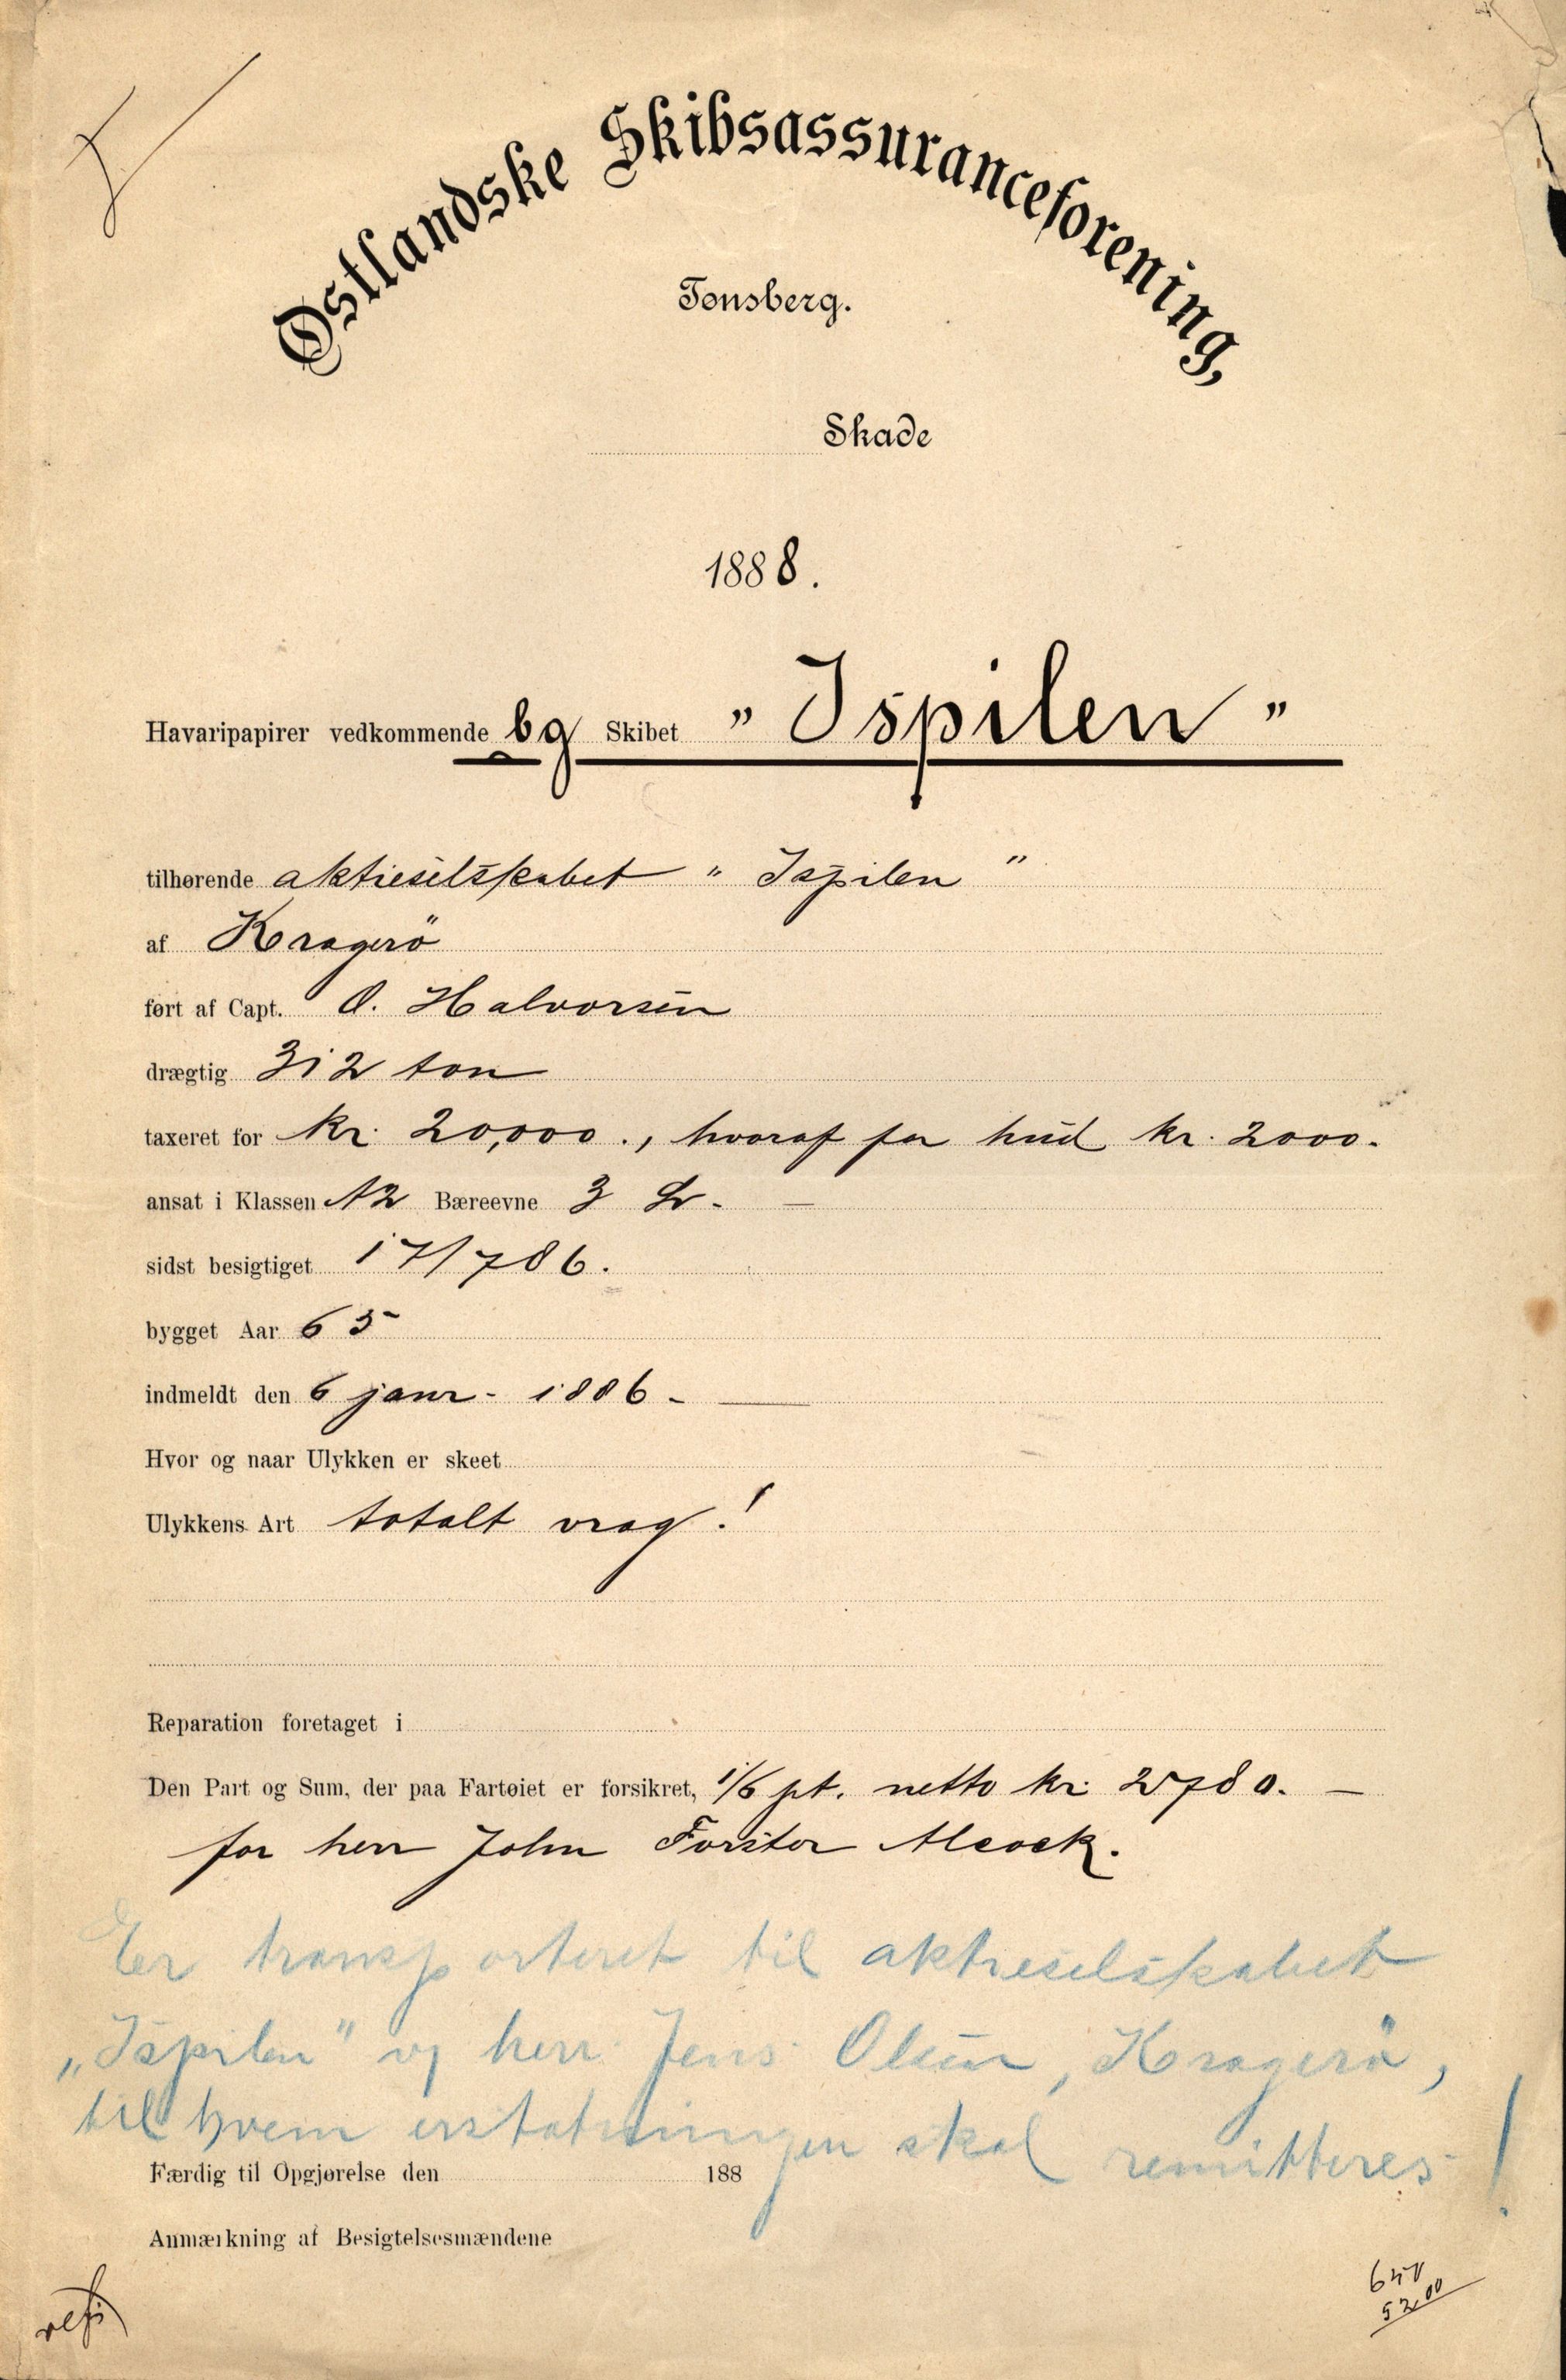 Østlandske Skibsassuranceforening,
Tønsberg.
Skade
1888.
Havaripapirer vedkommende bg Skibet „ Ispilen "
tilhørende aktieselskabet „ Ispilen "
af Kragerö
ført af Capt. O. Halvorsen
drægtig 312 ton
taxeret for kr. 20,000., hvoraf for hud kr. 2000.
ansat i Klassen A2 Bæreevne 3 L. —
sidst besigtiget 17/786.
bygget Aar 65
indmeldt den 6 janr - 1886 -
Hvor og naar Ulykken er skeet
Ulykkens Art totalt vrag!
Reparation foretaget i
Den Part og Sum, der paa Fartøiet er forsikret, 1/6 pt. netto kr. 2780. —
for herr John Forster Alcock.
Er transporteret til aktieselskabet
„Ispilen" v/ herr Jens Olsen, Kragerö,
til hvem erstatningen skal remitteres!
Færdig til Opgjørelse den 188
Anmærkning af Besigtelsesmændene